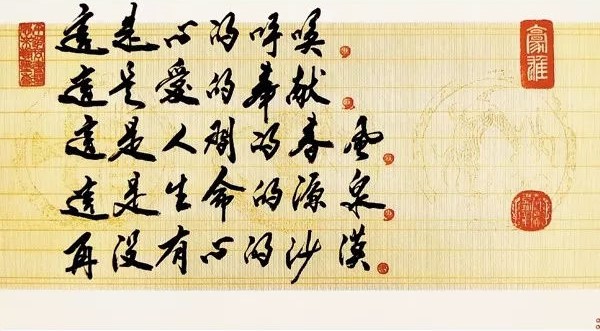 這是心的呼唤
這是愛的奉献
這是人間的春風
這是生命的源泉
再没有心的沙漠
豪雅